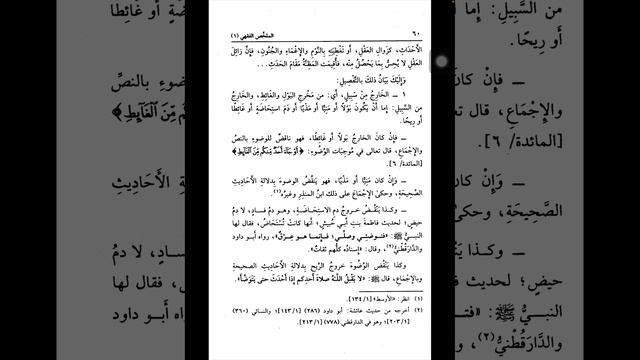 ٦٠ الملخص الفقهي (١)
الأحداثِ، كزوالِ العقلِ، أو تغطيتِهِ بالنَّومِ والإغماءِ والجُنونِ، فإنَّ زائلَ
العقلِ لا يُحِسُّ بما يَحْصُلُ منه، فأُقيمَت المَظِنَّةُ مَقَامَ الحَدَثِ...
وَإِليْكَ بَيَانُ ذلك بالتَّفصِيلِ:
١ – الخَارجُ مِنْ سَبِيلٍ، أي: مِن مَخْرجِ البَوْلِ والغَائطِ، والخَارجُ
من السَّبِيلِ: إما أنْ يَكُونَ بَوْلًا أو مَنِيًّا أو مَذْيًا أو دَمَ استحَاضَةٍ أو غَائِطًا
أو رِيحًا.
– فإنْ كانَ الخارجُ بَولًا أو غَائِطًا، فهو ناقضٌ للوضوءِ بالنصِّ
والإجْمَاعِ، قال تعالى في مُوجِبَاتِ الوُضُوءِ: ﴿أَوْ جَاءَ أَحَدٌ مِّنكُم مِّنَ ٱلْغَآئِطِ﴾
[المائدة/ ٦].
– وَإِنْ كان مَنِيًّا أو مَذْيًا، فهو يَنْقُضُ الوضوءَ بدلالةِ الأحَادِيثِ
الصَّحِيحَةِ، وحكى الإجْمَاعَ على ذلك ابنُ المنذِرِ وغيرُه(١).
– وكَذا يَنْقُضُ خروجُ دمِ الاستحَاضَةِ، وهو دمُ فَسادٍ، لا دمُ
حيضٍ؛ لحديث فاطمةَ بنتِ أبي حُبيشٍ؛ أنها كانتْ تُستَحَاضُ، فقال لها
النبيُّ ﷺ: «فتَوضئِي وصلِّي، فإنَّما هو عِرْقٌ»، رواه أبو داود
والدَّارقُطْنيُّ(٢)، وقال: «إسنادُه كلُّهم ثقاتٌ».
وكذا يَنْقُض الوُضُوءَ خروجُ الرِّيحِ بِدلالةِ الأحاديثِ الصحيحةِ
وبالإجْمَاعِ، قال ﷺ: «لا يَقْبلُ اللَّهُ صلاةَ أحدِكم إذا أَحْدَثَ حتى يَتَوَضَّأَ».
(١) انظر: «الأوسط» [١/١٣٤].
(٢) أخرجه من حديث عائشة: أبو داود (٢٨٦) [١/١٤٣]؛ والنسائي (٣٦٠)
[١/٢٠٣]؛ وهو في الدارقطني (٧٧٨) [١/٢١٣].